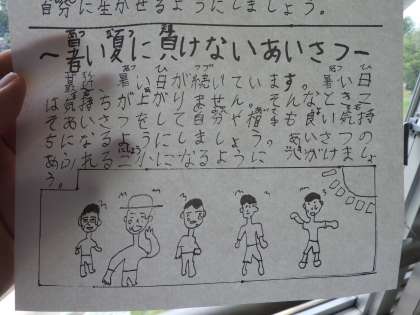 自分に生かせるようにしましょう。
～暑い夏に負けないあいさつ～
最近、暑い日が続いています。暑い日
は気持ちが上がりません。そんなときこ
そあいさつをして自分や相手も良い気持
ちになるようにしましょう。あいさつの
あふれる二小になるように心がけましょ
う。